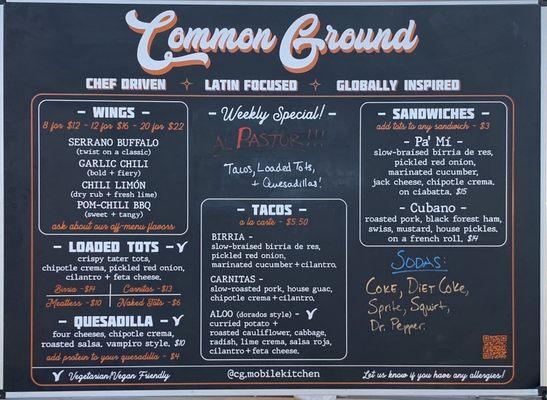 Common Ground
CHEF DRIVEN LATIN FOCUSED GLOBALLY INSPIRED
- WINGS -
8 for $12 - 12 for $16 - 20 for $22
SERRANO BUFFALO
(twist on a classic)
GARLIC CHILI
(bold + fiery)
CHILI LIMÓN
(dry rub + fresh lime)
POM-CHILI BBQ
(sweet + tangy)
ask about our off-menu flavors
- LOADED TOTS -
crispy tater tots,
chipotle crema, pickled red onion,
cilantro + feta cheese.
Birria - $14 Carnitas - $13
Meatless - $10 Naked Tots - $6
- QUESADILLA -
four cheeses, chipotle crema,
roasted salsa, vampiro style. $10
add protein to your quesadilla - $4
Vegetarian/Vegan Friendly
- Weekly Special! -
AL PASTOR!!!
Tacos, Loaded Tots,
+ Quesadillas!
- TACOS -
a la carte - $5.50
BIRRIA -
slow-braised birria de res,
pickled red onion,
marinated cucumber + cilantro.
CARNITAS -
slow-roasted pork, house guac,
chipotle crema + cilantro.
ALOO (dorados style) -
curried potato +
roasted cauliflower, cabbage,
radish, lime crema, salsa roja,
cilantro + feta cheese.
@cg.mobilekitchen
- SANDWICHES -
add tots to any sandwich - $3
- Pa' Mi -
slow-braised birria de res,
pickled red onion,
marinated cucumber,
jack cheese, chipotle crema.
on ciabatta. $15
- Cubano -
roasted pork, black forest ham,
swiss, mustard, house pickles.
on a french roll. $14
SODAS:
COKE, DIET COKE,
Sprite, Squirt,
Dr. Pepper.
Let us know if you have any allergies!